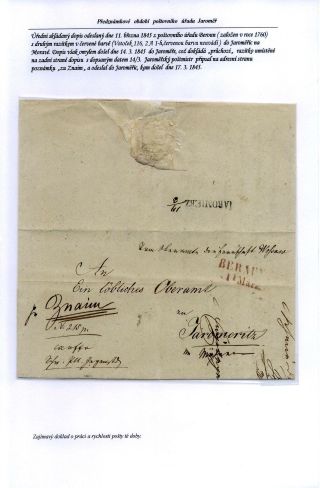 Předznámkové období poštovního úřadu Jaroměř
Úřední skládaný dopis odeslaný dne 11. března 1845 z poštovního úřadu Beroun ( založen v roce 1760)
s druhým razítkem v červené barvě (Votoček, 116, 2,A 1-b, červenou barvu neuvádí) do Jaroměřic na
Moravě. Dopis však omylem došel dne 14. 3. 1845 do Jaroměře, což dokládá „příchozí„ razítko umístěné
na zadní straně dopisu s dopsaným datem 14/3. Jaroměřský poštmistr připsal na adresní stranu
poznámku „za Znaim„ a odeslal do Jaroměřic, kam došel dne 17. 3. 1845.
JAROMIERZ
An
BERAUN
11 März
Ein löbliches Oberamt
Znaim
zu
Jaromeritz
in Mähren
Zajímavý doklad o práci a rychlosti pošty té doby.